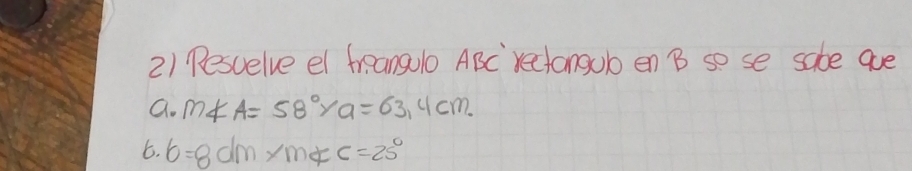 2) Resuelve el triangulo ABC rectangulo en B si se sabe que
a. m∡A = 58° y a = 63,4 cm.
b. b = 8 dm y m∡C = 25°